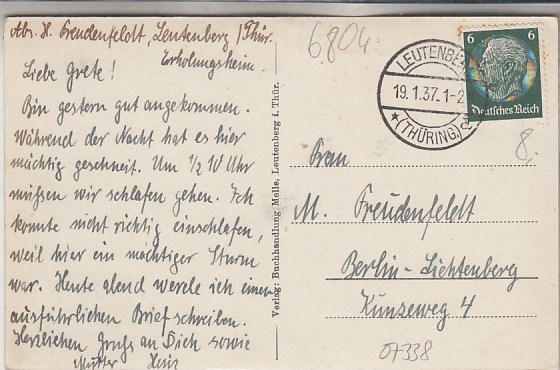 Abs. H. Freudenfeldt, Leutenberg / Thür.
Erholungsheim.
Liebe Grete!
Bin gestern gut angekommen.
Während der Nacht hat es hier
mächtig geschneit. Um ½ 10 Uhr
müssen wir schlafen gehen. Ich
konnte nicht richtig einschlafen,
weil hier ein mächtiger Sturm
war. Heute abend werde ich einen
ausführlichen Brief schreiben.
Herzlichen Gruß an Dich sowie
Mutter
Verlag: Buchhandlung Melle, Leutenberg i. Thür.
6804
LEUTENBE
19.1.37.1-2
(THÜRING)
6 6
Deutsches Reich
8.
Frau
M. Freudenfeldt
Berlin-Lichtenberg
Kunzeweg 4
07338